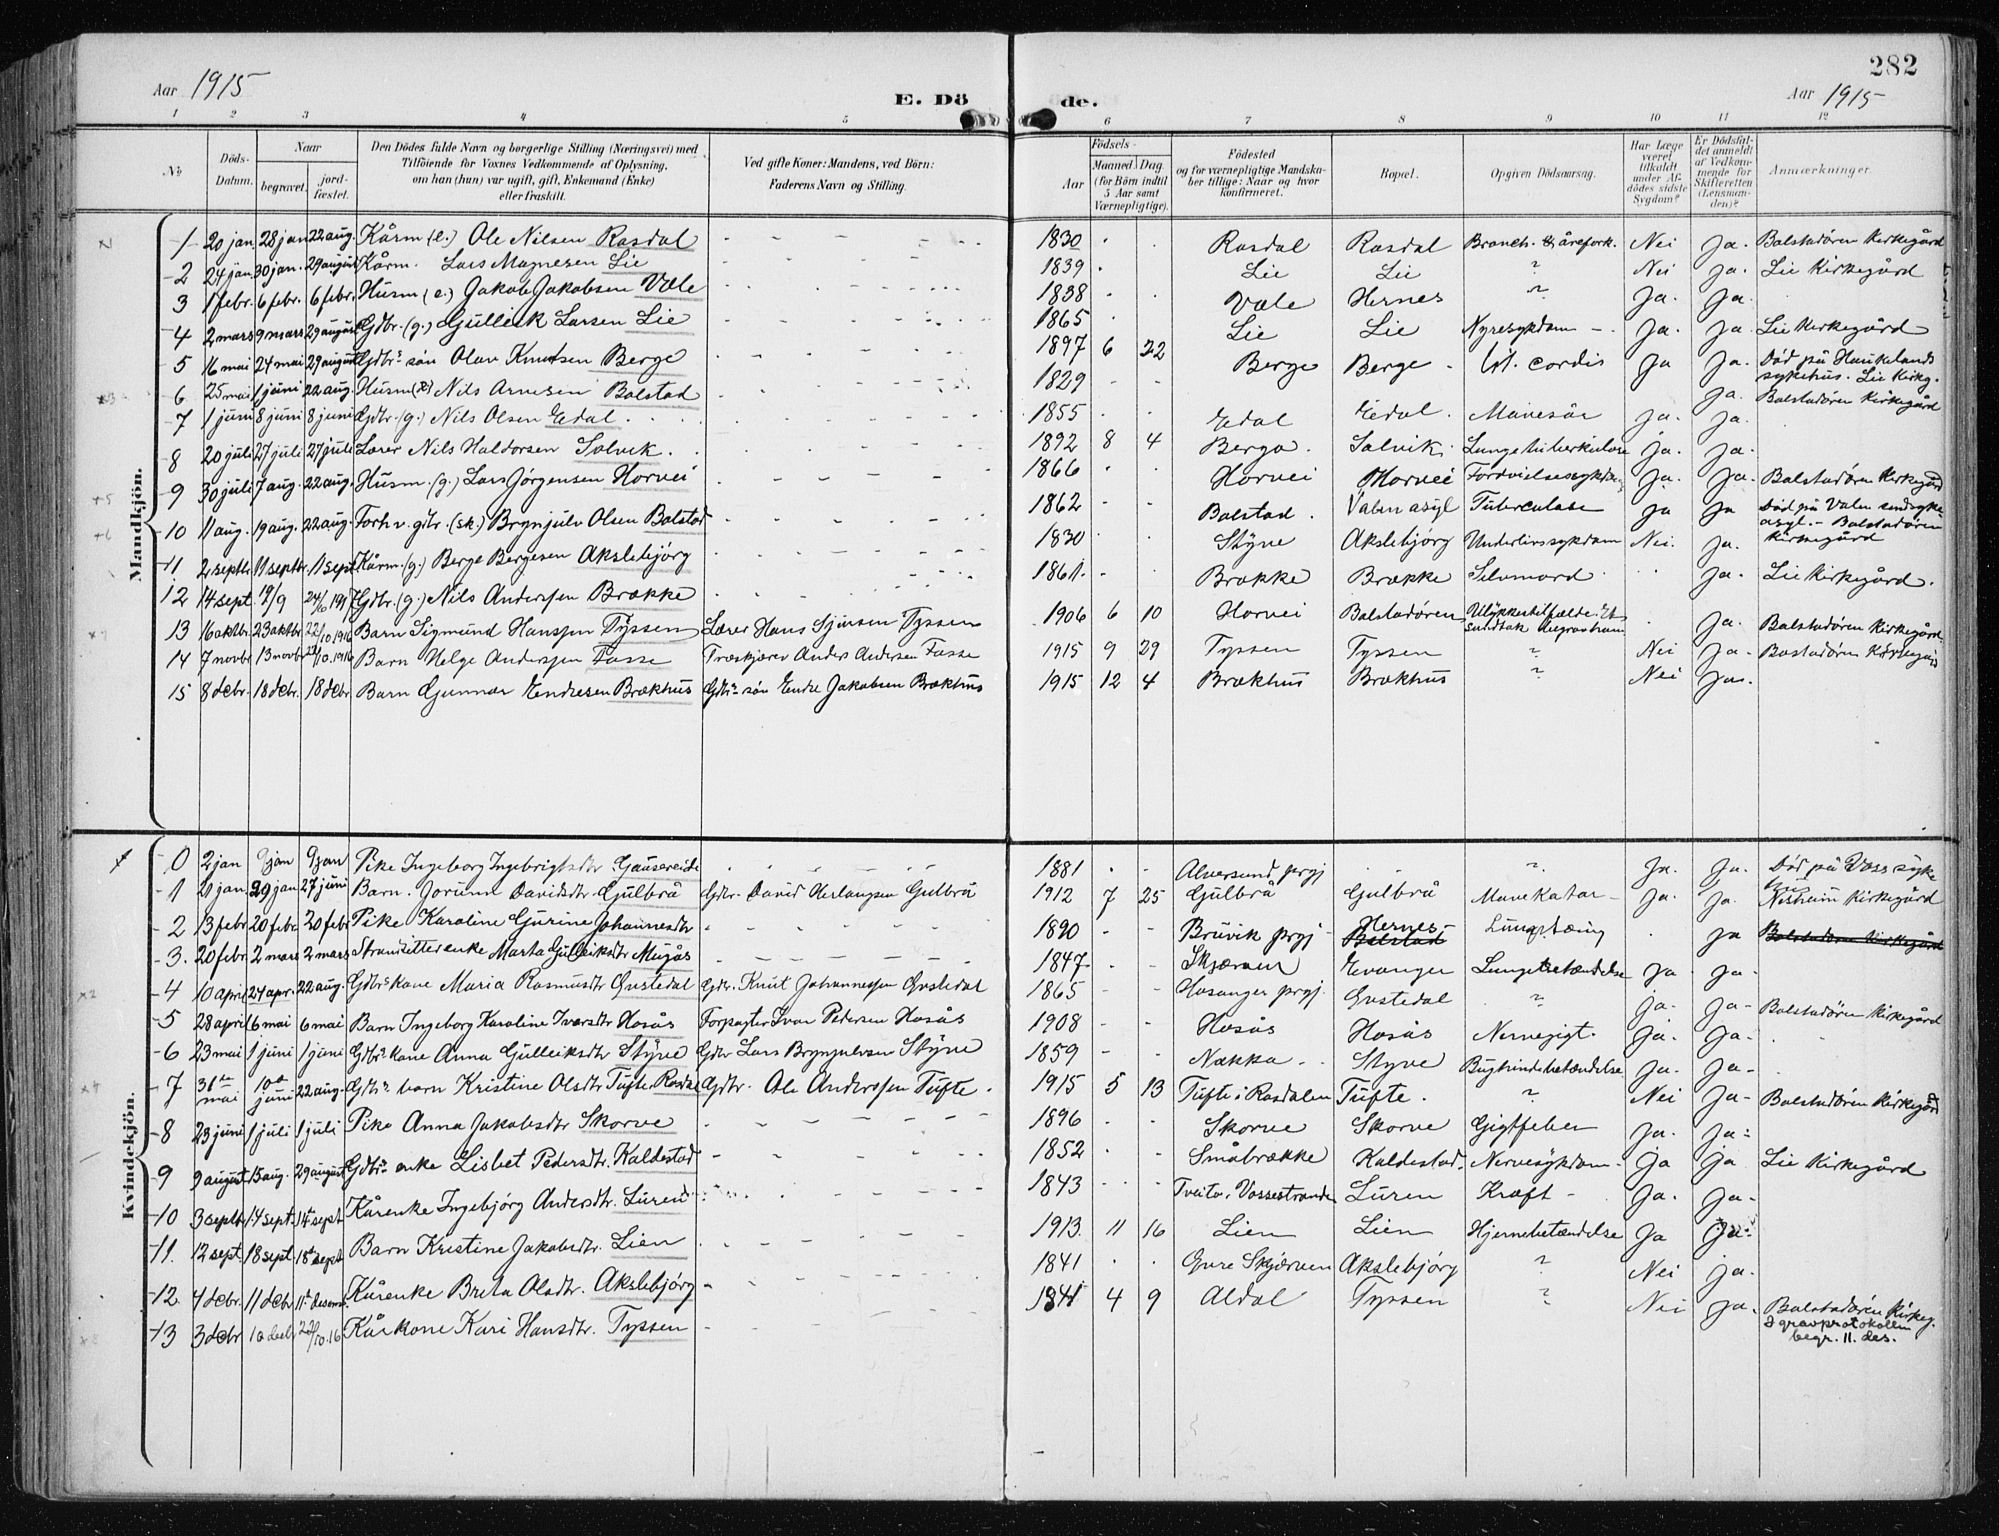 Aar 1915
E. Döde.
282
Aar 1915
1 2 3 4 5 6 7 8 9 10 11 12
No
Döds-Datum.
Naar
begravet.
jord-fæstet.
Den Dödes fulde Navn og borgerlige Stilling (Næringsvei) med
Tilföiende for Voxnes Vedkommende af Oplysning,
om han (hun) var ugift, gift, Enkemand (Enke)
eller fraskilt.
Ved gifte Koner: Mandens, ved Börn:
Faderens Navn og Stilling.
Födsels-
Aar
Maaned Dag
(for Börn indtil
5 Aar samt
Værnepligtige).
Födested
og for værnepligtige Mandska-
ber tillige: Naar og hvor
konfirmeret.
Bopæl.
Opgiven Dödsaarsag.
Har Læge
været
tilkaldt
under Af-
dödes sidste
Sygdom?
Er Dödsfal-
det anmeldt
af Vedkom-
mende for
Skifteretten
(Lensman-
den)?
Anmærkninger
Mandkjön.
1 20 jan 28 jan 22 aug. Kårm (e.) Ole Nilsen Rasdal 1830 Rasdal Rasdal Bronch. & årefork. Nei Ja. Bolstadören Kirkegård
2 24 jan 30 jan. 29 august Kårm. Lars Magnesen Lie 1839 Lie Lie ? Nei Ja. Lie Kirkegård
3 1 febr. 6 febr. 6 febr. Husm (e.) Jakob Jakobsen Væle 1838 Væle Hernes ? Ja. Ja.
4 2 mars 9 mars 29 august Gdbr. (g.) Gulleik Larsen Lie 1865 Lie Lie Nyresykdom Ja. Ja. Lie Kirkegård
5 16 mai 24 mai 29 august Gdbrs sön Olav Knutsen Berge 1897 6 22 Berge Berge Vit. cordis Ja Ja. Död på Haukelands
sykehus. Lie Kirkg.
6 25 mai 1 juni 22 aug. Husm (e) Nils Arnesen Bolstad 1829 Ja. Bolstadören Kirkegård
7 1 juni 8 juni 8 juni Gdbr. (g.) Nils Olsen Edal 1855 Edal Edal Mavesår Ja. Ja.
8 20 juli 27 juli 27 juli Lærer Nils Haldorsen Solvik 1892 8 4 Berge Solvik Lungetuberkulose Ja. Ja.
9 30 juli 7 aug. 22 aug. Husm. (g.) Lars Jørgensen Horvei 1866 Horvei Horvei Fordøielsessykdom Ja. Ja. Bolstadören Kirkegård
10 11 aug. 19 aug. 22 aug. Forhv. gbr. (sk.) Brynjulv Olsen Bolstad 1862 Bolstad Valen asyl Tuberculose Ja Ja Död på Valen sindsyke-
asyl. - Bolstadören
Kirkegård
11. 2 septbr. 11 septbr. 11 sept. Kårm. (g.) Berge Bergesen Akslebjörg 1830 Styve Akslebjorg Underlivssykdom Nei. Ja.
12 14 sept. 19/9 24/6 1917 Gdbr. (g.) Nils Anderssen Brække 1861. Brække Brække Selvmord Ja. Lie Kirkegård.
13 16 oktbr. 23 oktbr. 22/10 1916 Barn Sigmund Hanssen Tyssen Lærer Hans Sjursen Tyssen 1906 6 10 Horvei Bolstadören Ulykkestilfælde: Et
sandtak begrov ham Ja. Bolstadören Kirkegård.
14 7 novbr 13 novbr 22/10. 1916 Barn Helge Anderssen Fosse Træskjærer Anders Andersen Fosse 1915 9 29 Tyssen Tyssen ? Nei Ja. Bostadören Kirkegård
15 8 debr. 18 debr. 18 debr Barn Gunnar Endresen Brækhus Gdbrs sön Endre Jakobsen Brækhus 1915 12 4 Brækhus Brækhus ? Nei Ja.
Kvindekjön.
0 2 jan 9 jan 9 jan Pike Ingeborg Ingebrigtsdtr Gausereide 1881 Alversund prgj ? Ja. Ja. Död på Voss syke
hus
1 21 jan 29 jan 27 juni Barn. Jorunn Davidsdtr Gulbrå Gdbr. David Herlaugsen Gulbrå 1912 7 25 Gulbrå Gulbrå Mavekatar Ja. Ja. Nesheim Kirkegård
2 13 febr 20 febr 20 febr Pike Karoline Gurine Johannesdtr 1890 Bruvik prgj Hernes Bolstad Lungetæring Ja Bolstadören Kirkegård
3. 20 febr 2 mars 2 mars Strandsitterenke Marta Gulleiksdtr Mugås 1847. Skjerven Evanger Lungebetændelse Ja Ja.
4 10 april 24 apr. 22 aug. Gdbrs kone Maria Rasmusdtr Gustedal Gdbr. Knut Johannessen Gustedal 1865 Hosanger prgj. Gustedal ? Ja. Ja Bolstadören Kirkegård
5 28 april 6 mai 6 mai Barn Ingeborg Karoline Iversdtr Hosås Forpagter Ivar Pedersen Hosås 1908 Hosås Hosås Nervegigt. Ja. Ja.
6 23 mai 1 juni 1 juni Gdbrs kone Anna Gulleiksdtr Styve Gdbr Lars Brynjulvsen Styve 1859 Nækka Styve Bughindebetændelse Ja. Ja
7 31te mai 10de juni 22 aug. Gdbrs barn Kristine Olsdtr Tufte, Rosdal Gdbr. Ole Anderssen Tufte. 1915 5 13 Tufte i Rosdalen Tufte. ? Nei Ja Bolstadören Kirkegård
8 23 juni 1 juli 1 juli Pike Anna Jakobsdtr Skorve 1896 Skorve Skorve Gigtfeber Ja. Ja
9 9 august 15 aug. 29 august Gdbrs enke Lisbet Pedersdtr. Kaldestad 1852 Småbrække Kaldestad Nervesykdom Ja Ja Lie Kirkegård
10 3 septbr 14 sept. 14 sept Kårenke Ingebjörg Andersdtr. Luren 1843 Tveito, Vossestranden Luren Kræft Ja. Ja
11. 12 sept. 18 sept. 18 sept Barn Kristine Jakobsdtr. Lien 1913. 11 16 Lien Lien Hjernebetændelse Ja Ja
12 4 debr. 11 debr 11 desem. Kårenke Brita Olsdtr. Akslebjörg 1841 Øvre Skjerven Akslebjörg ? Nei Ja.
13 3 debr 10 decbr 22/10.16 Kårkone Kari Hansdtr. Tyssen 1841 4 9 Aldal Tyssen ? Nei Ja. Bolstadören Kirkeg.
I gravprotokollen
begr. 11. des.